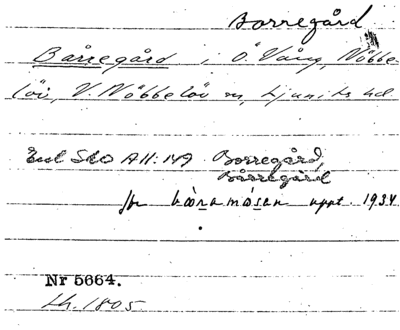 Borregård
Bårregård i Ö. Vång, Nöbbe-
löv, V. Nöbbelöv sn, Ljunits hd.
Enl Sko A11:149 Borregård,
Bårregård
jfr uppt. 1934
Nr 5664.
Lh. 1805